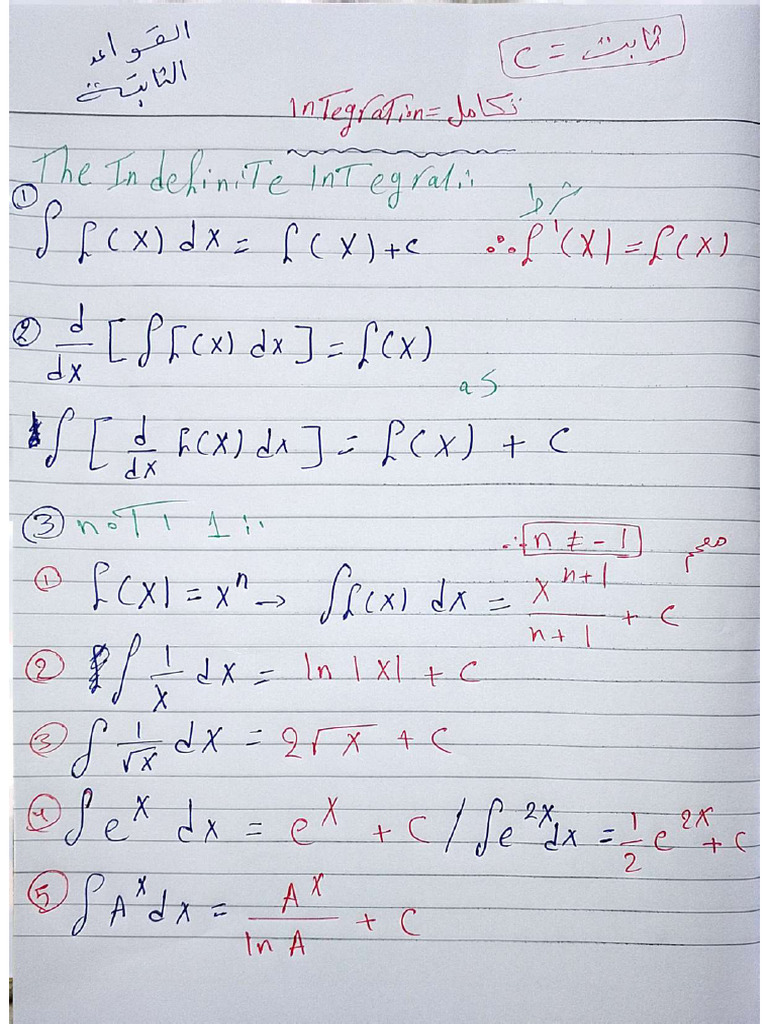 القواعد
الثابتة
C = ثابت
Integration = تكامل
The Indefinite Integral:
① ∫ f(x) dx = f(x) + c شرط ∴ f'(x) = f(x)
② d/dx [∫ f(x) dx] = f(x)
as
∫ [d/dx f(x) dx] = f(x) + c
③ not 1:
∴ n ≠ -1 مهم
① f(x) = x^n → ∫ f(x) dx = x^(n+1)/(n+1) + c
② ∫ 1/x dx = ln |x| + c
③ ∫ 1/√x dx = 2√x + c
④ ∫ e^x dx = e^x + c / ∫ e^2x dx = 1/2 e^2x + c
⑤ ∫ A^x dx = A^x/ln A + c